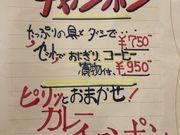 チャンポン
たっぷりの具とダシで… ¥750
セットでおにぎり、コーヒー
漬物付 ¥950
ピリッとおまかせ!
カレー
チャンポン